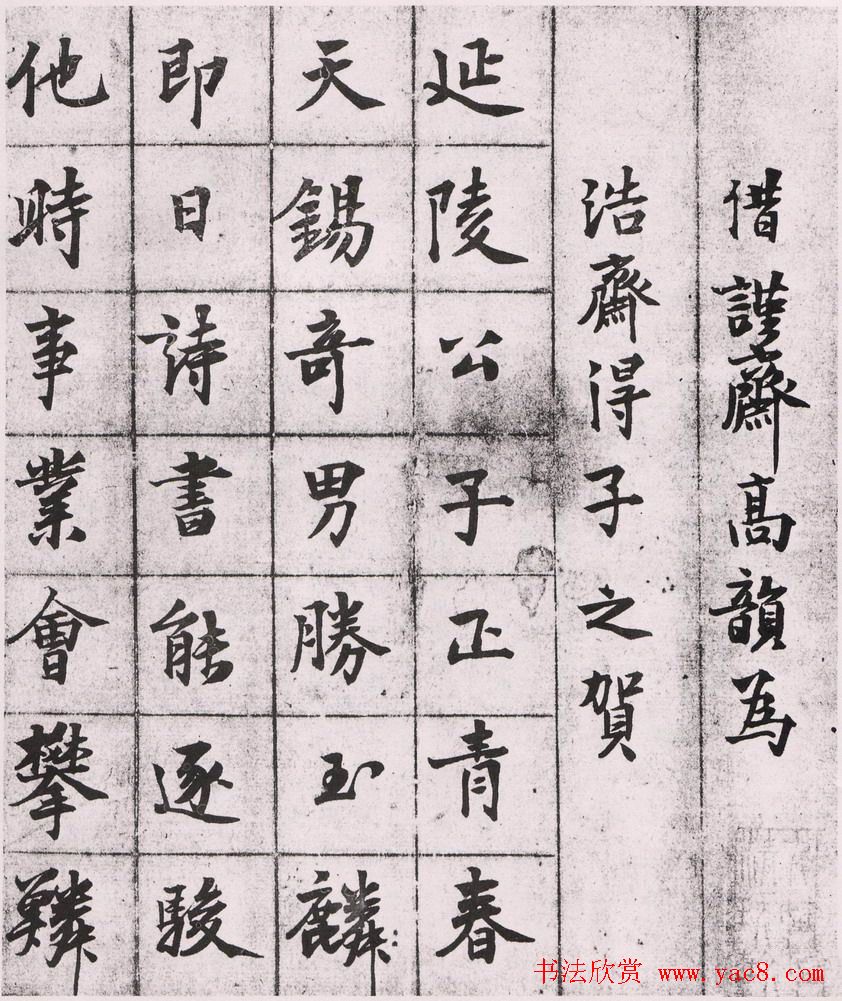 借謹齋髙韻為
浩齋得子之賀
延陵公子正青春
天錫奇男勝玉麟
即日詩書能逐駿
他時事業會攀鱗
书法欣赏 www.yac8.com